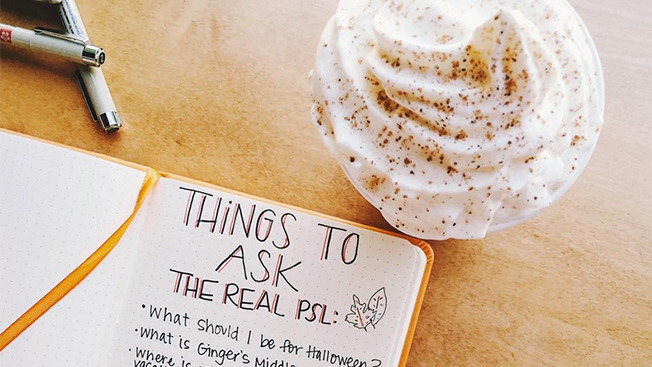 THINGS TO
ASK
THE REAL PSL:
• What should I be for Halloween?
• What is Ginger's Middle
• Where is